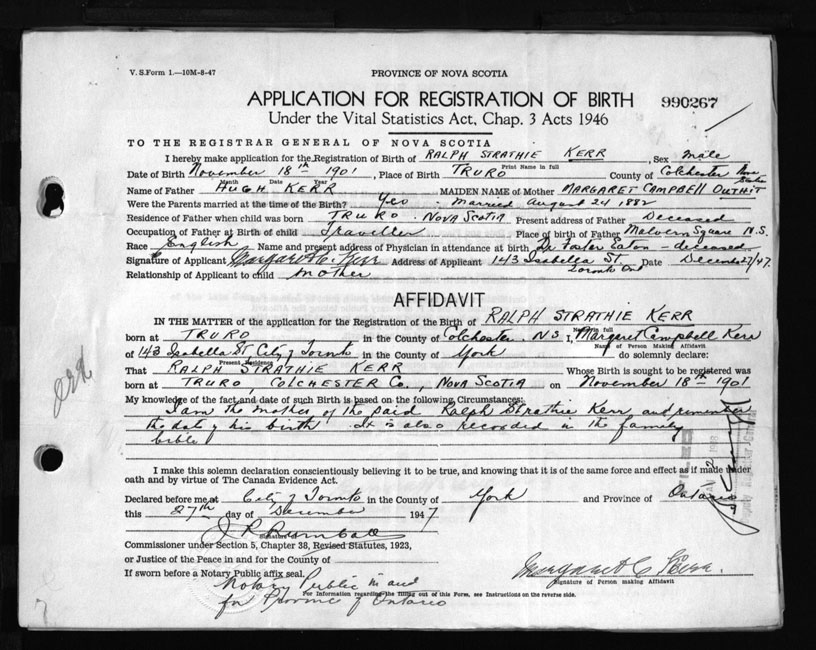 V. S. Form 1.—10M-8-47
PROVINCE OF NOVA SCOTIA
APPLICATION FOR REGISTRATION OF BIRTH 990267
Under the Vital Statistics Act, Chap. 3 Acts 1946
TO THE REGISTRAR GENERAL OF NOVA SCOTIA
I hereby make application for the Registration of Birth of RALPH STRATHIE KERR, Sex male
Print Name in full
Date of Birth November 18th 1901, Place of Birth TRURO County of Colchester Nova Scotia
Month Date Year
Name of Father HUGH KERR MAIDEN NAME of Mother MARGARET CAMPBELL OUTHIT
Were the Parents married at the time of Birth? Yes. Married August 24 1882
Residence of Father when child was born TRURO. NOVA SCOTIA Present address of Father Deceased
Occupation of Father at Birth of child Traveller Place of Birth of Father Malvern Square N.S.
Race English Name and present address of Physician in attendance at birth Dr Foster Eaton – deceased
Signature of Applicant Margaret C. Kerr Address of Applicant 143 Isabella St Toronto Ont Date December 27/47.
Relationship of Applicant to child mother
AFFIDAVIT
IN THE MATTER of the application for the Registration of the Birth of RALPH STRATHIE KERR
Name in full
born at TRURO in the County of Colchester. N.S. I, Margaret Campbell Kerr
Name of Person Making Affidavit
of 143 Isabella St City of Toronto in the County of York do solemnly declare:
Present Residence
That RALPH STRATHIE KERR Whose Birth is sought to be registered was
born at TRURO, COLCHESTER Co., NOVA SCOTIA on November 18th 1901
My knowledge of the fact and date of such Birth is based on the following Circumstances:
I am the mother of the said Ralph Strathie Kerr and remember
the date of his birth. It is also recorded in the family
bible
I make this solemn declaration conscientiously believing it to be true, and knowing that it is of the same force and effect as if made under
oath and by virtue of The Canada Evidence Act.
Declared before me at City of Toronto in the County of York and Province of Ontario
this 27th day of December 1947
Signature
Commissioner under Section 5, Chapter 38, Revised Statutes, 1923,
or Justice of the Peace in and for the County of
If sworn before a Notary Public affix seal.
Notary Public in and
for Province of Ontario
Margaret C Kerr.
Signature of Person making Affidavit
For Information regarding the filling out of this Form, see Instructions on the reverse side.